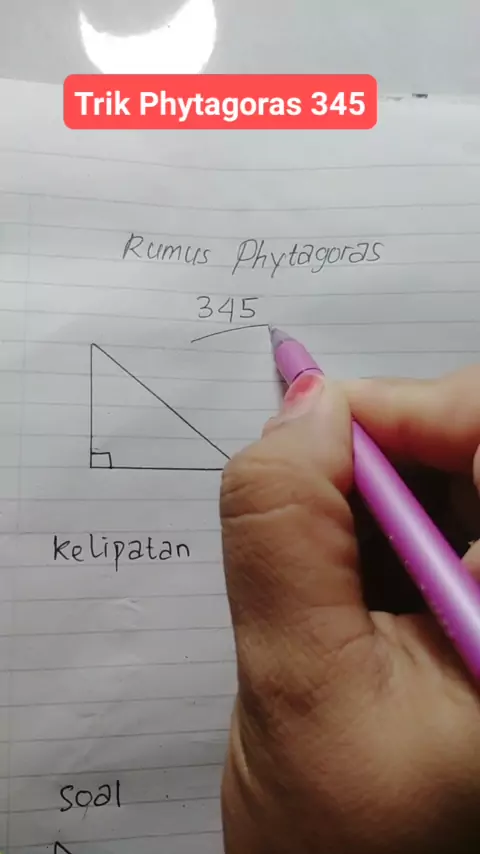 Trik Phytagoras 345
Rumus Phytagoras
345
Kelipatan
Soal